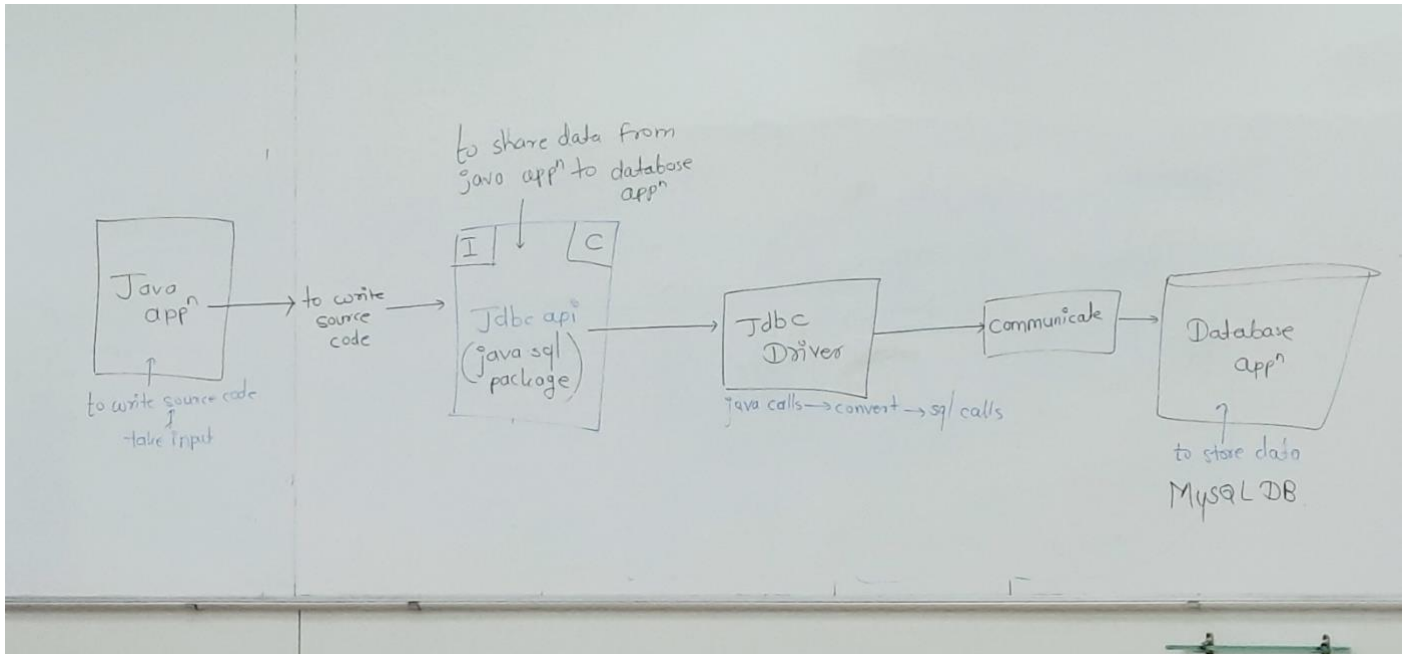 to share data from
java appⁿ to database
appⁿ
I
C
Java
appⁿ
to write source code
take input
to write
source
code
Jdbc api
(java sql
package)
Jdbc
Driver
java calls → convert → sql calls
Communicate
Database
appⁿ
to store data
MySQL DB